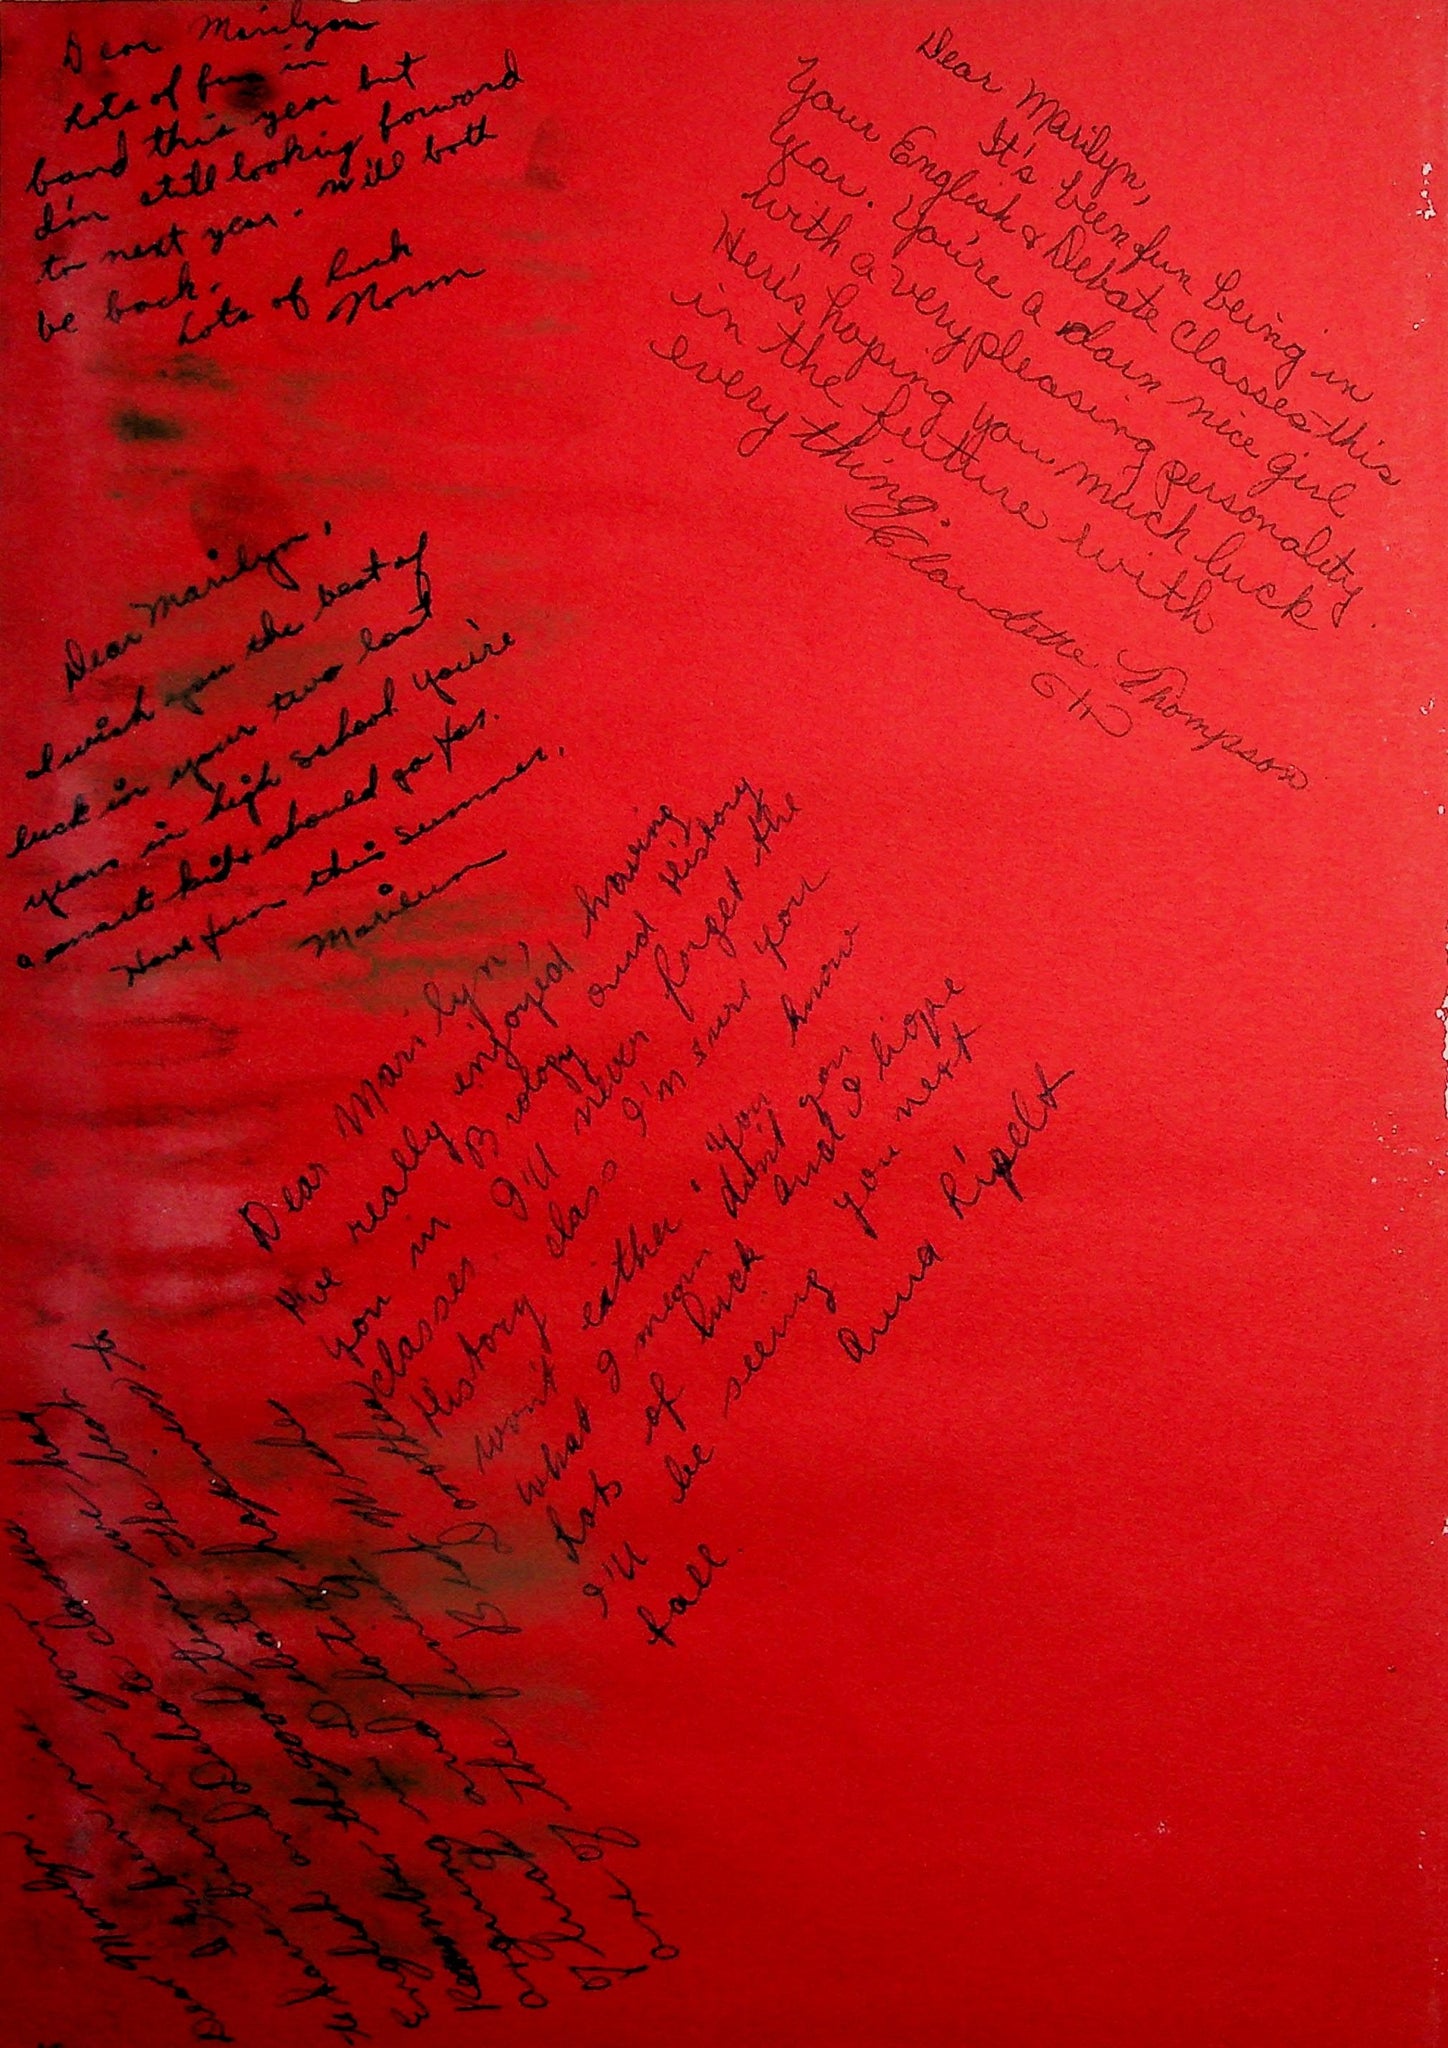 Dear Marilyn
Lots of fun in
band this year but
I'm still looking forward
to next year. We'll both
be back.
Lots of luck
Norm
Dear Marilyn,
It's been fun being in
Your English & Debate classes this
year. You're a darn nice girl
with a very pleasing personality.
Here's hoping you much luck
in the futture with
everything.
Claudette Thompson
Dear Marilyn,
I wish you the best of
luck in your two last
years in high school you're
a smart kid & should go far.
Have fun this summer.
Marilynn
Dear Marilyn,
I've really enjoyed having
you in Biology and History
classes. I'll never forget the
History class I'm sure you
won't either "you know
what I mean don't you
Lots of luck and I hope
I'll be seeing you next
fall.
Anna
Dear Marilyn.
fun
in your
English and Debate classes
Remember the good times we had
arguing in Debate.
and lots of
the